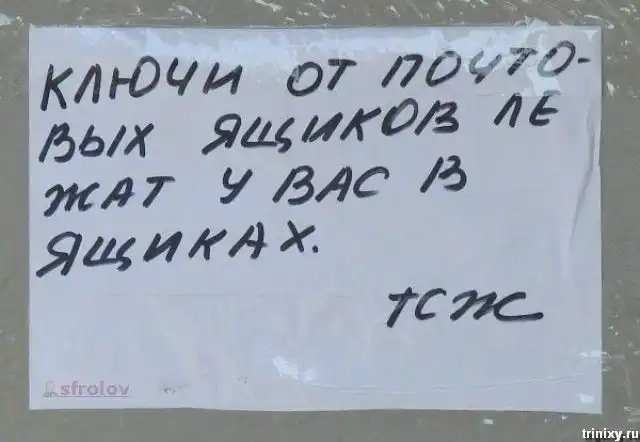 КЛЮЧИ ОТ ПОЧТО-
ВЫХ ЯЩИКОВ ЛЕ
ЖАТ У ВАС В
ЯЩИКАХ.
ТСЖ
sfrolov
trinixy.ru